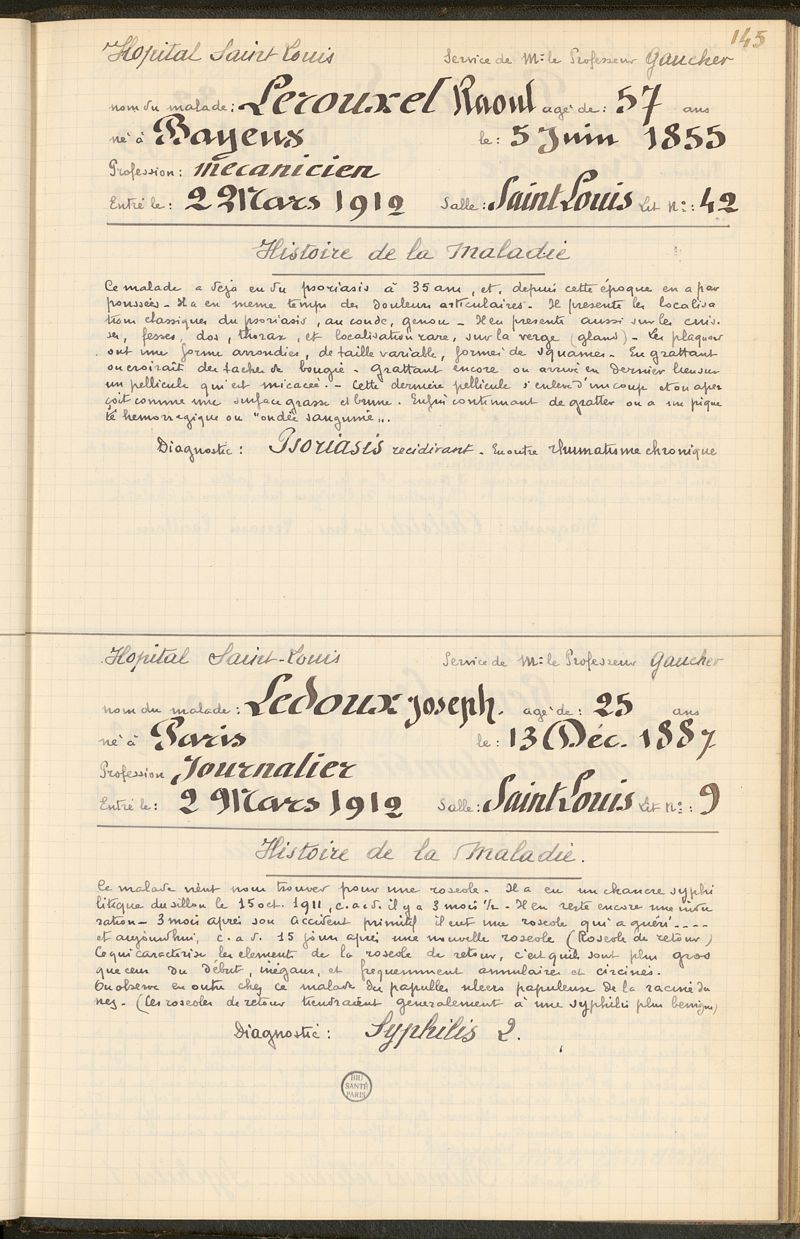 145
Hopital Saint Louis Service de Mr: le Professeur Gaucher
nom du malade: Lerouxel Raoul agé de: 57 ans
né à Bayeux le: 5 Juin 1855
Profession: mécanicien
Entré le: 22 Mars 1912 Salle: Saint Louis Lit No: 42
Histoire de la Maladie
Ce malade a déjà eu du psoriasis à 35 ans, et, depuis cette époque en a par
poussées - Il a en meme temps des douleurs articulaires - Il presente les localisa
tions classiques du psoriasis, au coude, genou - Il en presente aussi sur les cuis-
ses, fesses, dos, thorax, et localisation rare, sur la verge (gland) - Les plaques
ont une forme arrondies, de taille variable, formés de squames - En grattant
on croirait des taches de bougie - Grattant encore on arrive en dernier lieu sur
un pellicule qui est micacée. - Cette dernière pellicule s'enleve d'un coup et on aper
çoit comme une surface grasse et brune. Enfin continuant de gratter on a un pique
té hemorragique ou "ondée sanguine".
Diagnostic: Psoriasis recidivant - En outre rhumatisme chronique
Hopital Saint-Louis Service de Mr: le Professeur Gaucher
nom du malade: Ledoux Joseph. agé de: 25 ans
né à Paris le: 13 Déc. 1887
Profession Journalier
Entré le: 29 Mars 1912 Salle: Saint Louis Lit No: 9
Histoire de la Maladie.
Ce malade vient nous trouver pour une roseole - Il a eu un chancre syphi
litique du sillon le 15 oct. 1911, c. a. d. il y a 3 mois 1/2 - Il en reste encore une indu
ration - 3 mois après son accident primitif il eut une roseole qui a guéri - - - -
et aujourdhui, c. a. d. 15 jours après une nouvelle roseole (Roseole de retour)
Ce qui caractérise les elements de la roseole de retour, c'est quils sont plus gros
que ceux du début, inégaux, et frequemment annulaires et circinés.
On observe en outre chez ce malade des papulles ulcero papuleuse de la racine du
nez - (Les roseoles de retour tiendraient generalement à une syphilis plus benigne)
Diagnostic: Syphilis 2.
BIU
SANTÉ
PARIS